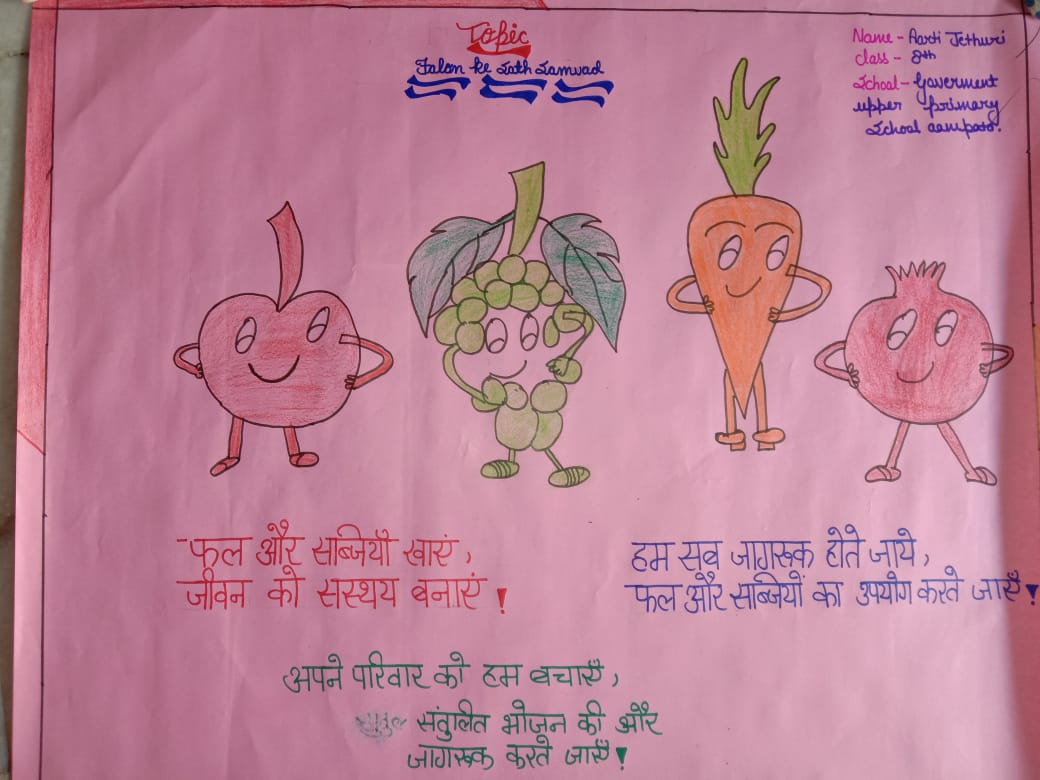 Topic
Falon ke Sath Samwad
Name - Aarti Jethuri
Class - 8th
School - Goverment
upper primary
School aampata.
फल और सब्जियाँ खाएं,
जीवन को सस्थय बनाएं !
हम सब जागरूक होते जाये,
फल और सब्जियों का उपयोग करते जाएँ !
अपने परिवार को हम बचाएँ,
संतुलित भोजन की और
जागरूक करते जाएँ !